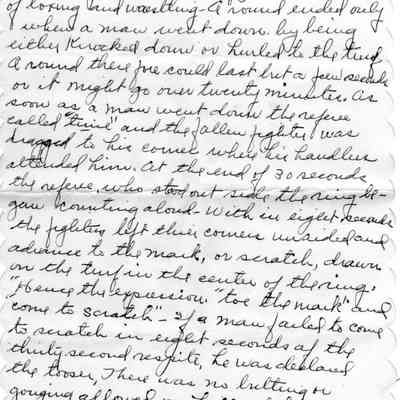 of boxing and wrestling - A "round ended only
when a man went down by being
either Knocked down or hurled to the turf
A round therefore could last but a few seconds
or it might go over twenty minutes. As
soon as a man went down the referee
called "time" and the fallen fighter was
dragged to his corner where his handlers
attended him. At the end of 30 seconds
the referee, who stood out side the ring be-
gan counting aloud. With in eight seconds
the fighters left their corners unaided and
advance to the mark, or scratch, drawn
on the turf in the center of the ring.
"Hence the expression "toe the mark" and
come to scratch" - If a man failed to come
to scratch in eight seconds of the
thirty second respite, he was declared
the looser, There was no butting or
gouging allowed